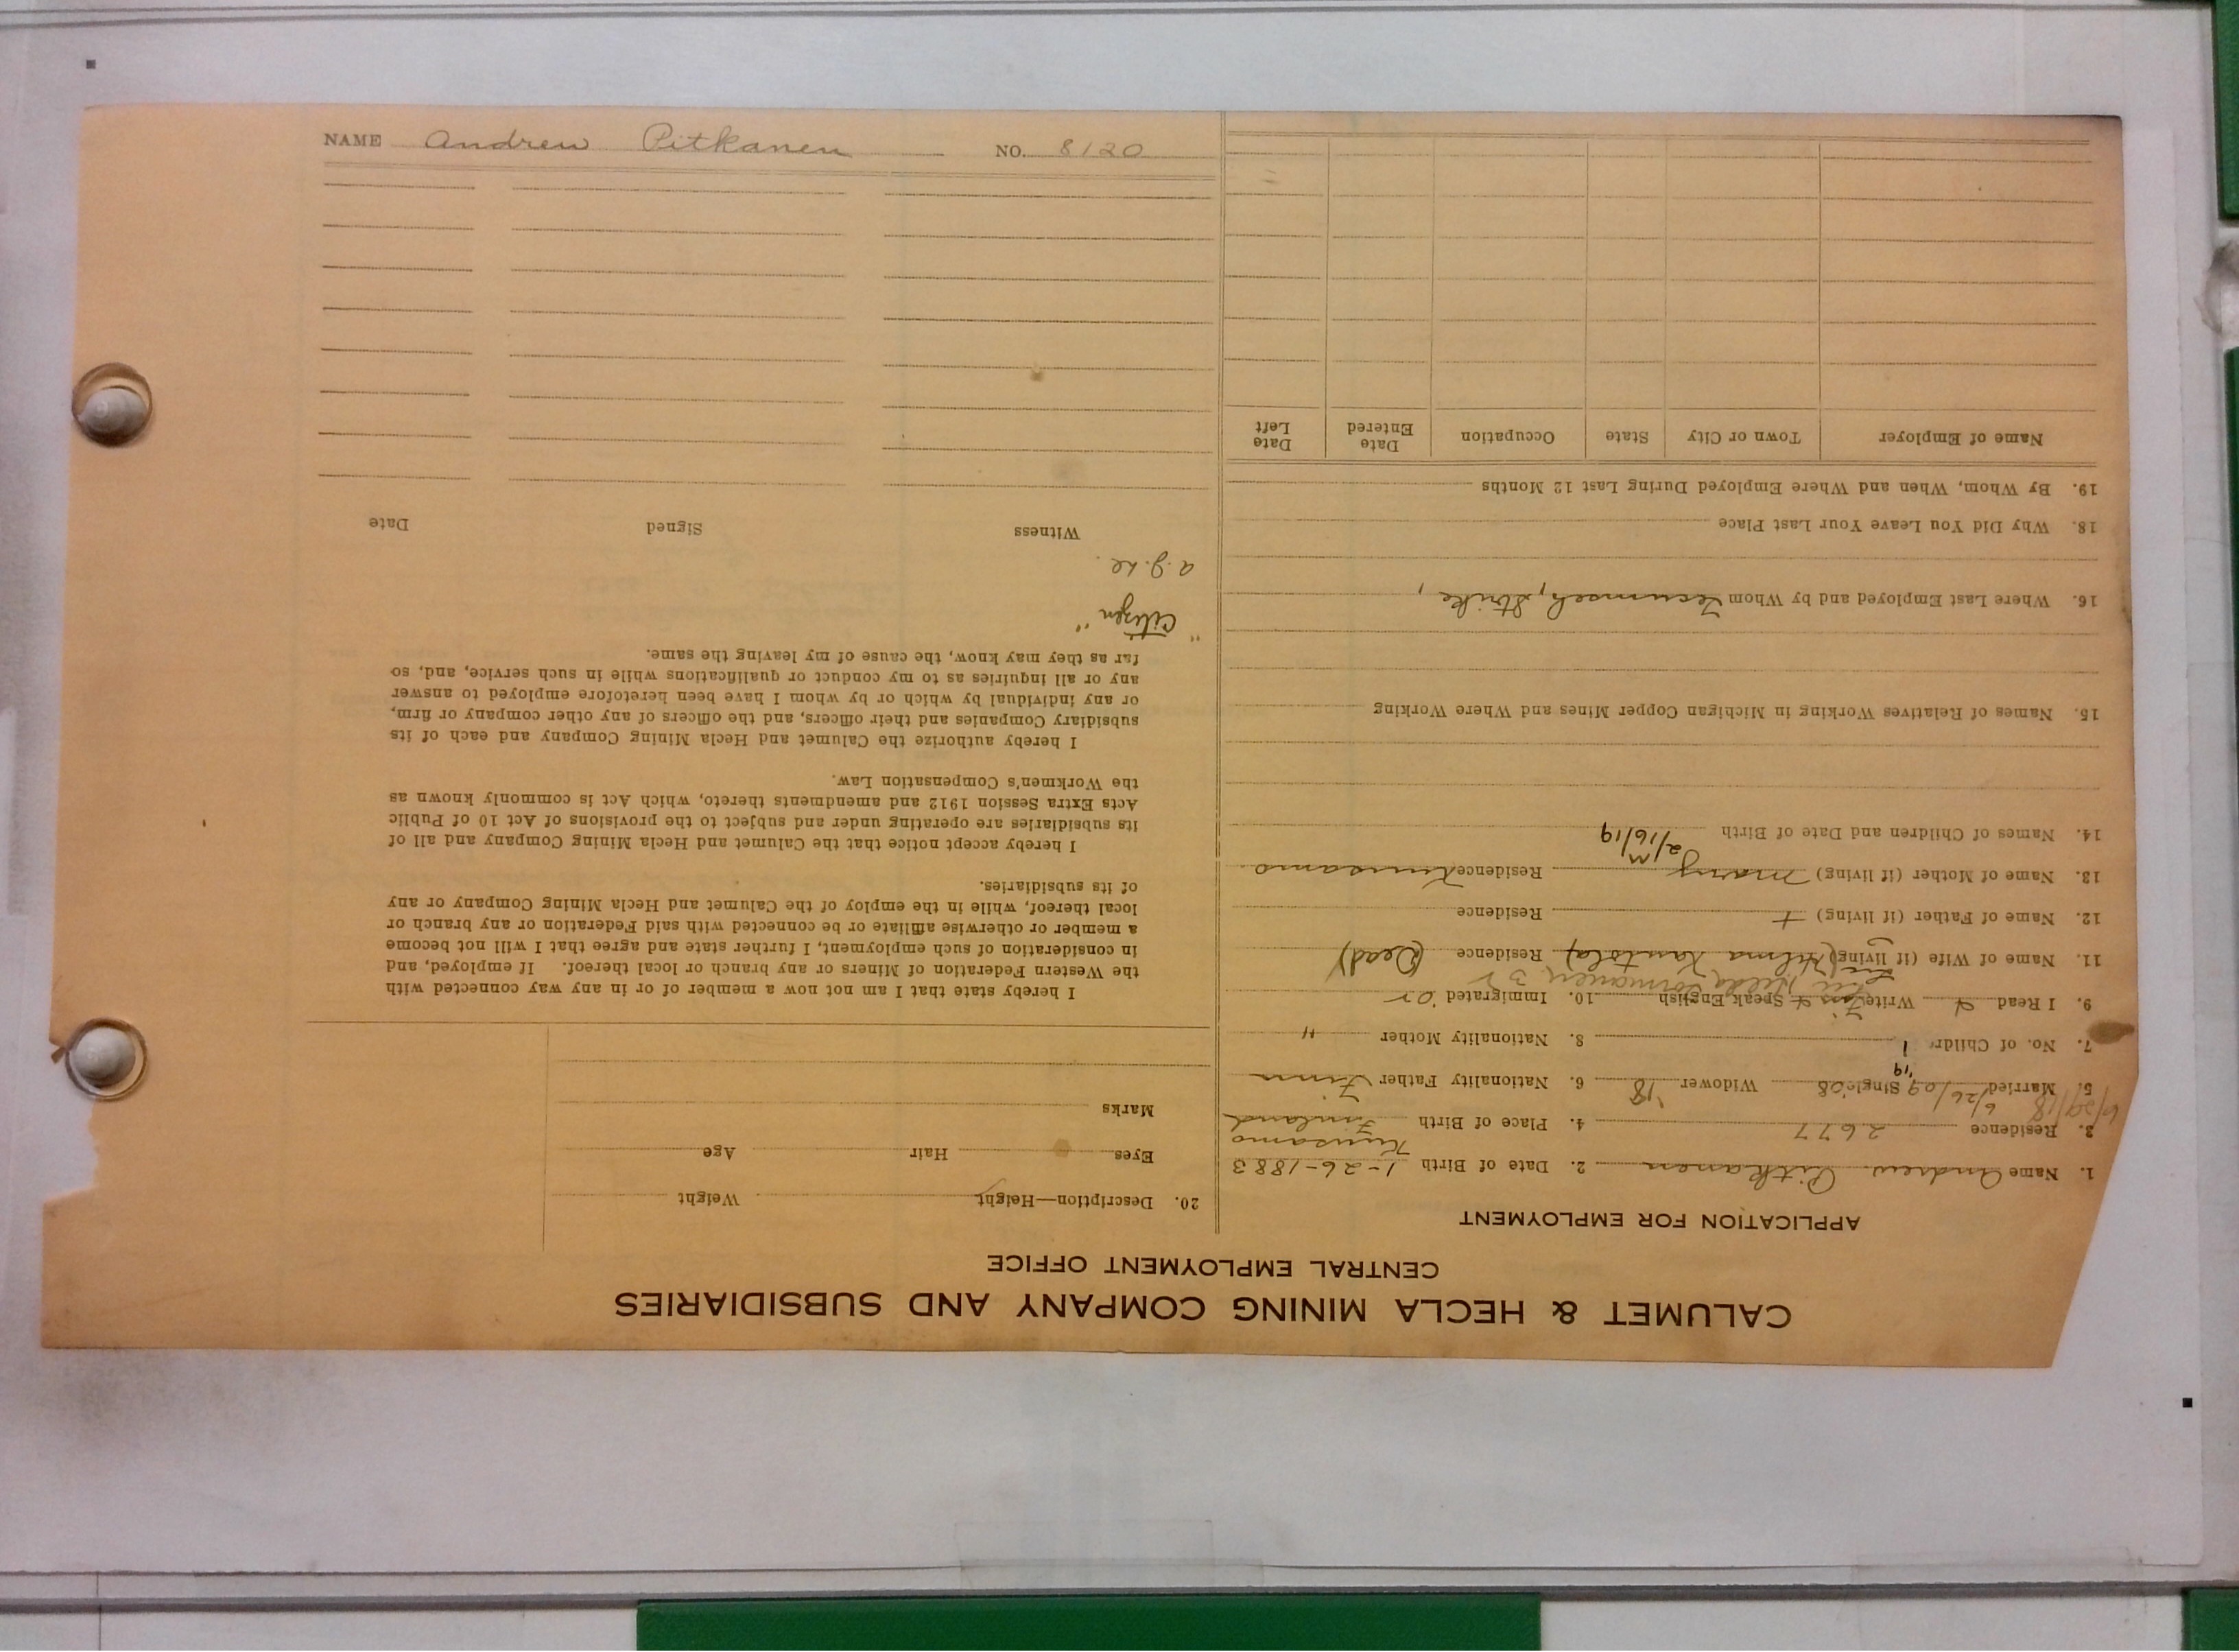 NAME Andrew Pitkanen NO. 8120
CALUMET & HECLA MINING COMPANY AND SUBSIDIARIES
CENTRAL EMPLOYMENT OFFICE
APPLICATION FOR EMPLOYMENT
1. Name Andrew Pitkanen 2. Date of Birth 1-26-1883
Kuusamo
3. Residence 2677 4. Place of Birth Finland
6/29/18 6/26/09
5. Married Single 08 Widower '18 6. Nationality Father Finn
'19
7. No. of Childr 1 8. Nationality Mother "
9. I Read Write Speak English 10. Immigrated 02
11. Name of Wife (if living) (Hilma Residence (Dead)
12. Name of Father (if living) + Residence
13. Name of Mother (if living) Mary Residence Kuusamo
M 2/16/19
14. Names of Children and Date of Birth
15. Names of Relatives Working in Michigan Copper Mines and Where Working
16. Where Last Employed and by Whom Tecumseh, Strike,
18. Why Did You Leave Your Last Place
19. By Whom, When and Where Employed During Last 12 Months
Name of Employer Town or City State Occupation Date Entered Date Left
20. Description—Height Weight
Eyes Hair Age
Marks
I hereby state that I am not now a member of or in any way connected with
the Western Federation of Miners or any branch or local thereof. If employed, and
in consideration of such employment, I further state and agree that I will not become
a member or otherwise affiliate or be connected with said Federation or any branch or
local thereof, while in the employ of the Calumet and Hecla Mining Company or any
of its subsidiaries.
I hereby accept notice that the Calumet and Hecla Mining Company and all of
its subsidiaries are operating under and subject to the provisions of Act 10 of Public
Acts Extra Session 1912 and amendments thereto, which Act is commonly known as
the Workmen's Compensation Law.
I hereby authorize the Calumet and Hecla Mining Company and each of its
subsidiary Companies and their officers, and the officers of any other company or firm,
or any individual by which or by whom I have been heretofore employed to answer
any or all inquiries as to my conduct or qualifications while in such service, and, so
far as they may know, the cause of my leaving the same.
"Citizen"
Witness Signed Date